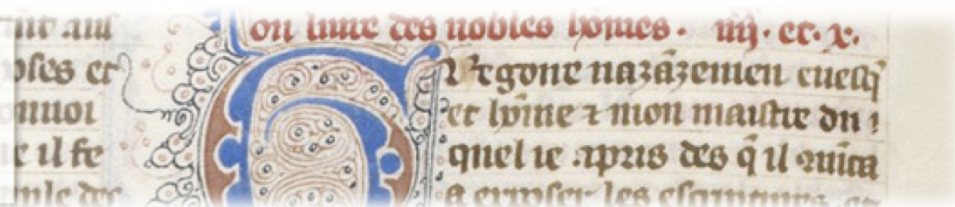 et
nuoi
il se
des
ou liure des nobles hōmes . iiij . et . x.
Gregoire nazāzenien euesq̄
et hōme ⁊ mon maistre du
quel ie apris des q̄ il
a exposer les escriptures et